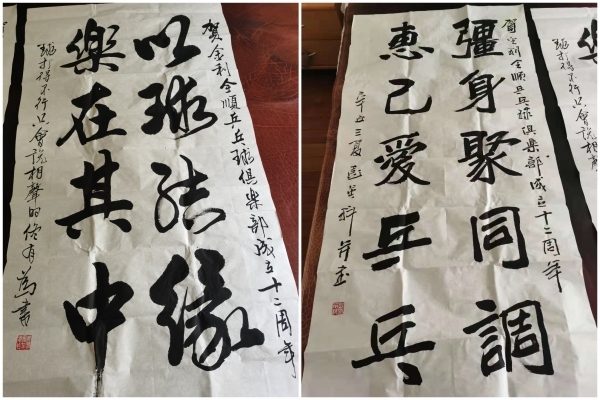 賀金利全順乒乓球俱樂部成立十二周年
以球結緣
樂在其中
球打得不行只會說相聲的佟有為書
賀金利全順乒乓球俱樂部成立十二周年
彊身聚同調
惠己愛乒乓
辛丑三夏
球打得不行只會說相聲